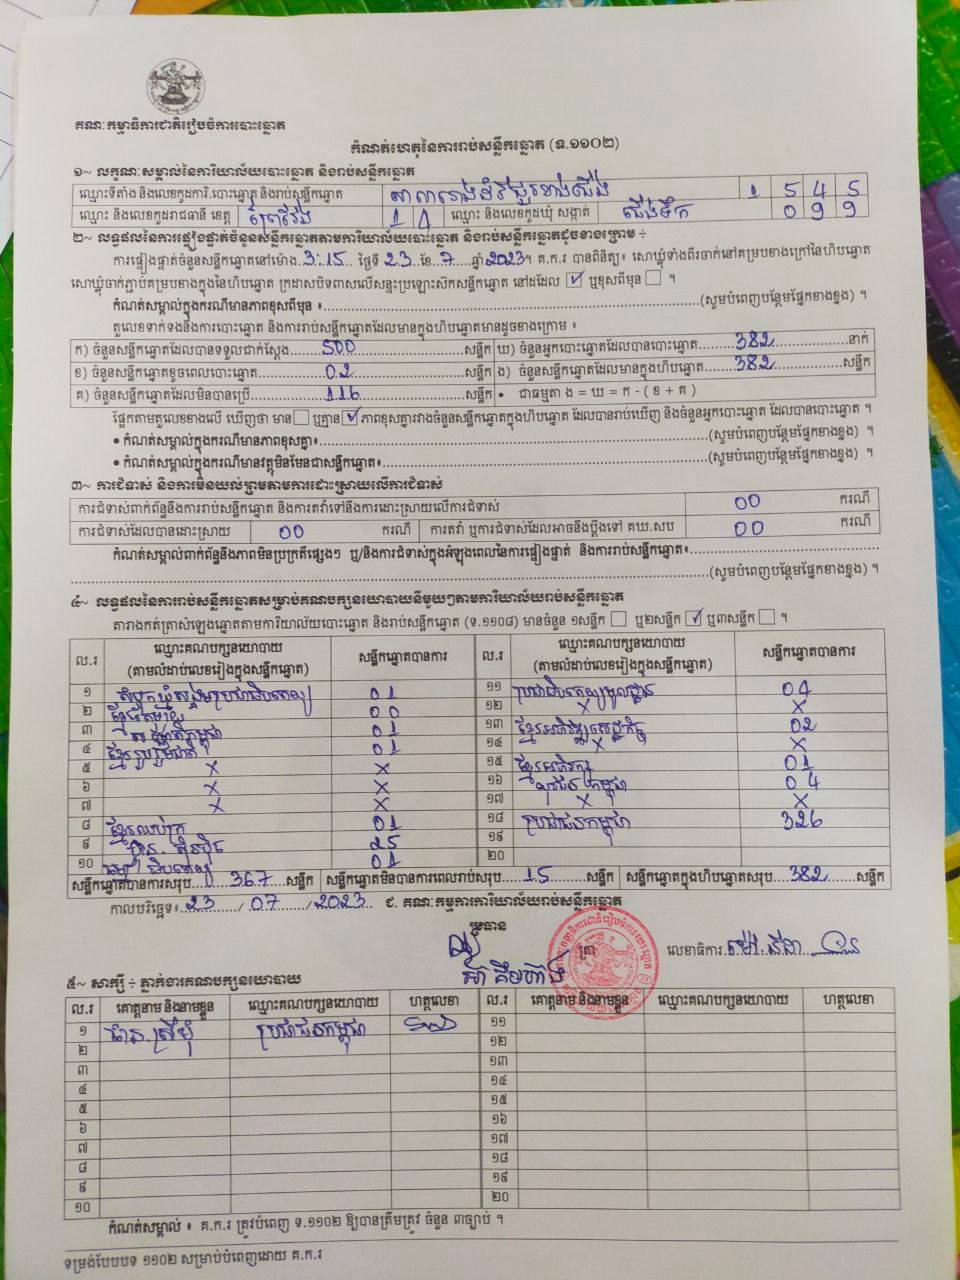 គណៈកម្មាធិការជាតិរៀបចំការបោះឆ្នោត
កំណត់ហេតុនៃការរាប់សន្លឹកឆ្នោត (ទ.១១០២)
១~ លក្ខណៈសម្គាល់នៃការិយាល័យបោះឆ្នោត និងរាប់សន្លឹកឆ្នោត
ឈ្មោះទីតាំង និងលេខកូដការិ.បោះឆ្នោត និងរាប់សន្លឹកឆ្នោត 1 5 4 5
ឈ្មោះ និងលេខកូដរាជធានី ខេត្ត ព្រៃវែង 1 4 ឈ្មោះ និងលេខកូដឃុំ សង្កាត់ ជើងទឹក 0 9 9
២~ លទ្ធផលនៃការផ្ទៀងផ្ទាត់ចំនួនសន្លឹកឆ្នោតតាមការិយាល័យបោះឆ្នោត និងរាប់សន្លឹកឆ្នោតដូចខាងក្រោម ÷
ការផ្ទៀងផ្ទាត់ចំនួនសន្លឹកឆ្នោតនៅម៉ោង 3:15 ថ្ងៃទី 23 ខែ 7 ឆ្នាំ 2023។ គ.ក.រ បានពិនិត្យ៖ សោឃ្លុំទាំងពីរចាក់នៅគម្របខាងក្រៅនៃហិបឆ្នោត
សោឃ្លុំចាក់ភ្ជាប់គម្របខាងក្នុងនៃហិបឆ្នោត ក្រដាសបិទពាសលើសន្ទះប្រឡោះសិកសន្លឹកឆ្នោត នៅដដែល ☑ ឬខុសពីមុន ☐ ។
កំណត់សម្គាល់ក្នុងករណីមានភាពខុសពីមុន ៖ (សូមបំពេញបន្ថែមផ្នែកខាងខ្នង) ។
តួលេខទាក់ទងនឹងការបោះឆ្នោត និងការរាប់សន្លឹកឆ្នោតដែលមានក្នុងហិបឆ្នោតមានដូចខាងក្រោម ៖
ក) ចំនួនសន្លឹកឆ្នោតដែលបានទទួលជាក់ស្តែង 500 សន្លឹក ឃ) ចំនួនអ្នកបោះឆ្នោតដែលបានបោះឆ្នោត 382 នាក់
ខ) ចំនួនសន្លឹកឆ្នោតខូចពេលបោះឆ្នោត 02 សន្លឹក ង) ចំនួនសន្លឹកឆ្នោតដែលមានក្នុងហិបឆ្នោត 382 សន្លឹក
គ) ចំនួនសន្លឹកឆ្នោតដែលមិនបានប្រើ 116 សន្លឹក • ជាធម្មតា ង = ឃ = ក - ( ខ + គ )
ផ្អែកតាមតួលេខខាងលើ ឃើញថា មាន ☐ ឬគ្មាន ☑ ភាពខុសគ្នារវាងចំនួនសន្លឹកឆ្នោតក្នុងហិបឆ្នោត ដែលបានរាប់ឃើញ និងចំនួនអ្នកបោះឆ្នោត ដែលបានបោះឆ្នោត ។
• កំណត់សម្គាល់ក្នុងករណីមានភាពខុសគ្នា៖ (សូមបំពេញបន្ថែមផ្នែកខាងខ្នង) ។
• កំណត់សម្គាល់ក្នុងករណីមានវត្ថុមិនមែនជាសន្លឹកឆ្នោត៖ (សូមបំពេញបន្ថែមផ្នែកខាងខ្នង) ។
៣~ ការជំទាស់ និងការមិនយល់ព្រមតាមការដោះស្រាយលើការជំទាស់
ការជំទាស់ពាក់ព័ន្ធនឹងការរាប់សន្លឹកឆ្នោត និងការតវ៉ាទៅនឹងការដោះស្រាយលើការជំទាស់ 00 ករណី
ការជំទាស់ដែលបានដោះស្រាយ 00 ករណី ការតវ៉ា ឬការជំទាស់ដែលអាចនឹងប្តឹងទៅ គឃ.សប 00 ករណី
កំណត់សម្គាល់ពាក់ព័ន្ធនឹងភាពមិនប្រក្រតីផ្សេងៗ ឬ/និងការជំទាស់ក្នុងអំឡុងពេលនៃការផ្ទៀងផ្ទាត់ និងការរាប់សន្លឹកឆ្នោត៖
(សូមបំពេញបន្ថែមផ្នែកខាងខ្នង) ។
៤~ លទ្ធផលនៃការរាប់សន្លឹកឆ្នោតសម្រាប់គណបក្សនយោបាយនីមួយៗតាមការិយាល័យរាប់សន្លឹកឆ្នោត
តារាងកត់ត្រាសំឡេងឆ្នោតតាមការិយាល័យបោះឆ្នោត និងរាប់សន្លឹកឆ្នោត (ទ.១១០៨) មានចំនួន ១សន្លឹក ☐ ឬ២សន្លឹក ☑ ឬ៣សន្លឹក ☐ ។
ល.រ ឈ្មោះគណបក្សនយោបាយ (តាមលំដាប់លេខរៀងក្នុងសន្លឹកឆ្នោត) សន្លឹកឆ្នោតបានការ ល.រ ឈ្មោះគណបក្សនយោបាយ (តាមលំដាប់លេខរៀងក្នុងសន្លឹកឆ្នោត) សន្លឹកឆ្នោតបានការ
១ សំបុកឃ្មុំសង្គមប្រជាធិបតេយ្យ 01 ១១ ប្រជាធិបតេយ្យមូលដ្ឋាន 04
២ 00 ១២ X X
៣ 01 ១៣ ខ្មែរអភិវឌ្ឍសេដ្ឋកិច្ច 02
៤ ខ្មែររួបរួមជាតិ 01 ១៤ X X
៥ X X ១៥ ខ្មែរអភិរក្ស 01
៦ X X ១៦ យុវជនកម្ពុជា 04
៧ X X ១៧ X X
៨ ខ្មែរឈប់ក្រ 01 ១៨ ប្រជាជនកម្ពុជា 326
៩ ហ៊្វុនស៊ិនប៉ិច 25 ១៩
១០ 01 ២០
សន្លឹកឆ្នោតបានការសរុប 367 សន្លឹក សន្លឹកឆ្នោតមិនបានការពេលរាប់សរុប 15 សន្លឹក សន្លឹកឆ្នោតក្នុងហិបឆ្នោតសរុប 382 សន្លឹក
កាលបរិច្ឆេទ៖ 23 / 07 / 2023 ជ. គណៈកម្មការការិយាល័យរាប់សន្លឹកឆ្នោត
ប្រធាន
ត្រា លេខាធិការ
៥~ សាក្សី ÷ ភ្នាក់ងារគណបក្សនយោបាយ
ល.រ គោត្តនាម និងនាមខ្លួន ឈ្មោះគណបក្សនយោបាយ ហត្ថលេខា ល.រ គោត្តនាម និងនាមខ្លួន ឈ្មោះគណបក្សនយោបាយ ហត្ថលេខា
១ ប្រជាជនកម្ពុជា ១១
២ ១២
៣ ១៣
៤ ១៤
៥ ១៥
៦ ១៦
៧ ១៧
៨ ១៨
៩ ១៩
១០ ២០
កំណត់សម្គាល់ ៖ គ.ក.រ ត្រូវបំពេញ ទ.១១០២ ឱ្យបានត្រឹមត្រូវ ចំនួន ៣ច្បាប់ ។
ទម្រង់បែបបទ ១១០២ សម្រាប់បំពេញដោយ គ.ក.រ